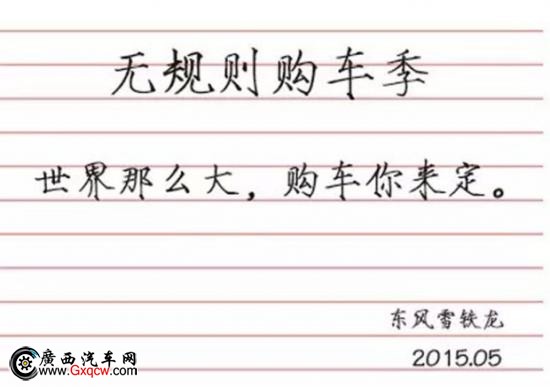 无规则购车季
世界那么大，购车你来定。
东风雪铁龙
2015.05
廣西汽车网
www.Gxqcw.com